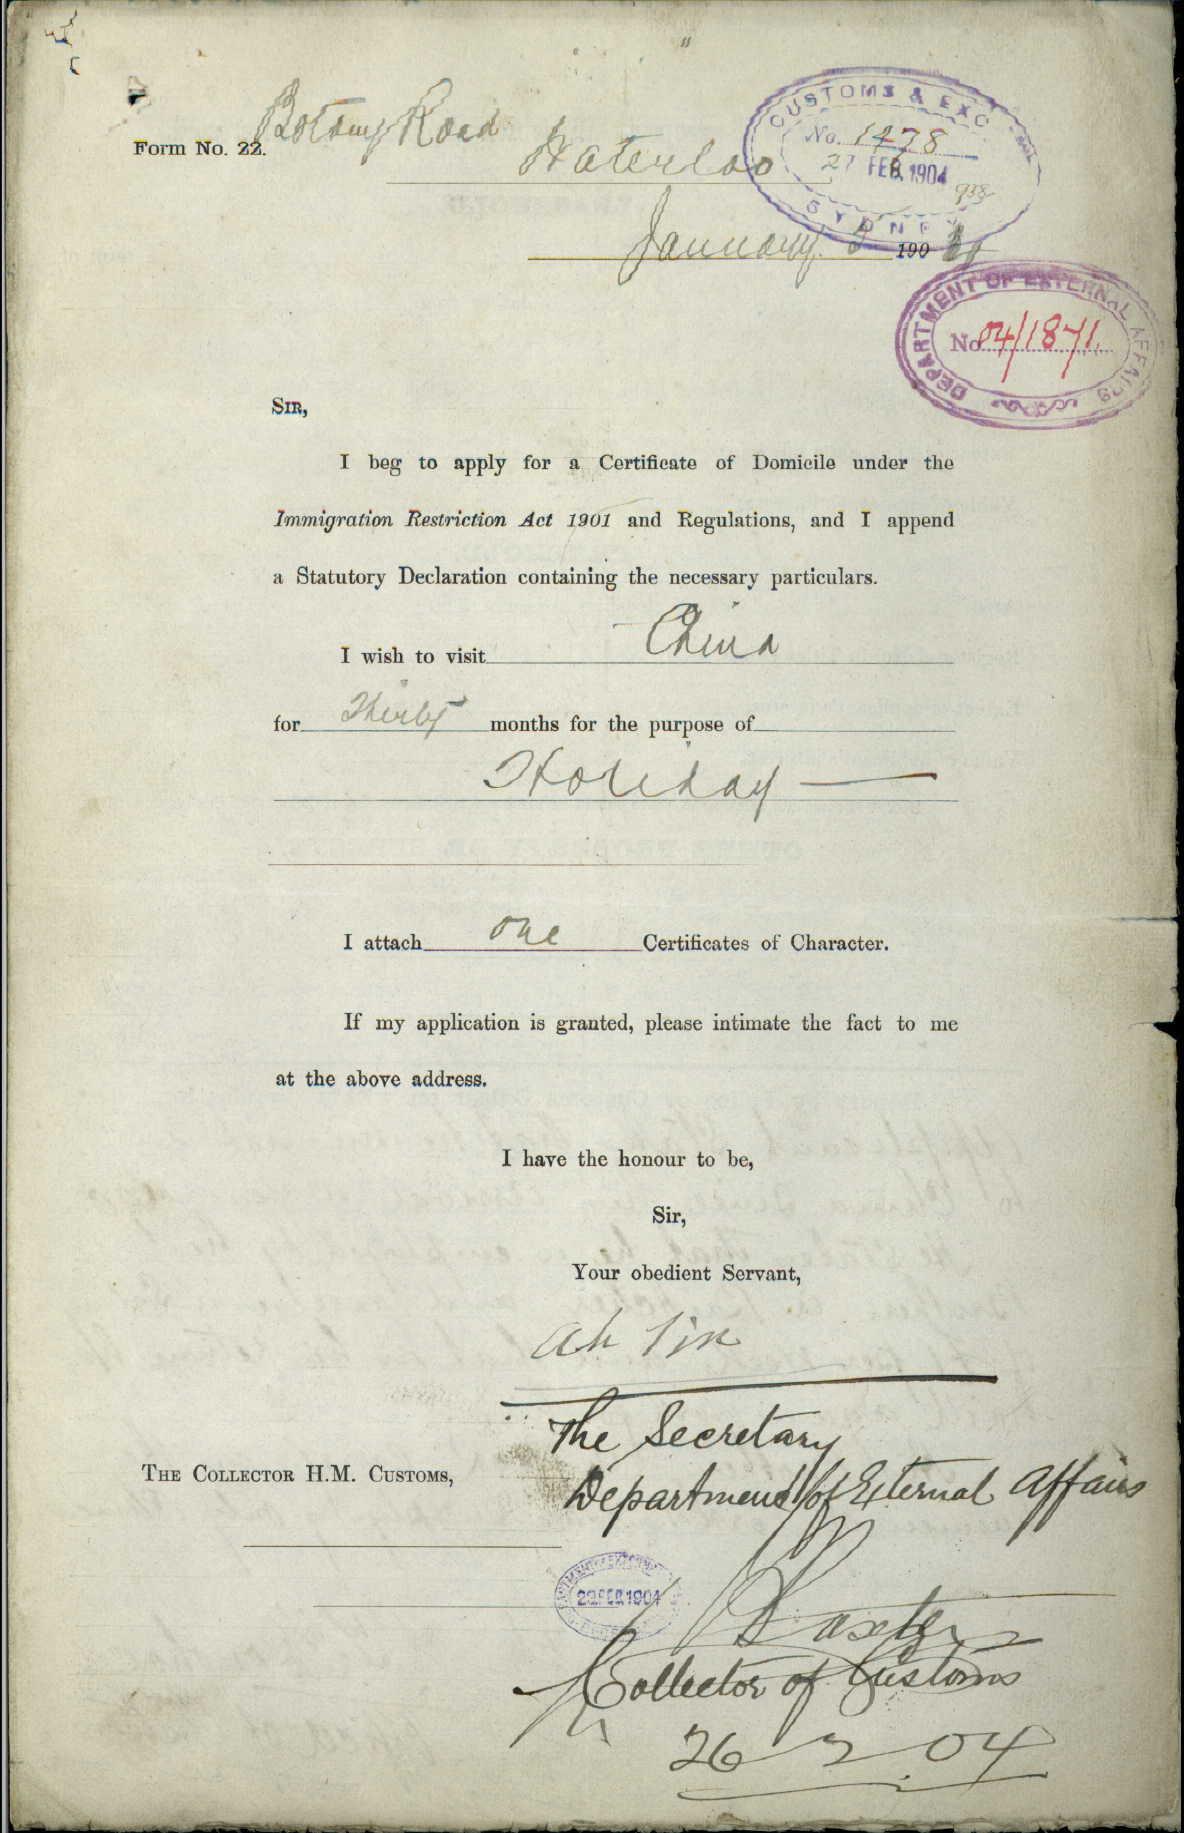 Botany Road
Form No. 22.
Waterloo
CUSTOMS & EXC
No. 1478
27 FEB. 1904
938
SYDNEY
January 190
DEPARTMENT OF EXTERNAL AFFAIRS
No 04/1871.
SIR,
I beg to apply for a Certificate of Domicile under the
Immigration Restriction Act 1901 and Regulations, and I append
a Statutory Declaration containing the necessary particulars.
I wish to visit China
for Thirty months for the purpose of
Holiday
I attach one Certificates of Character.
If my application is granted, please intimate the fact to me
at the above address.
I have the honour to be,
Sir,
Your obedient Servant,
Ah Tin
The Secretary
THE COLLECTOR H.M. CUSTOMS,
Department of External Affairs
29 FEB. 1904
Baxter
Collector of Customs
26 2 04